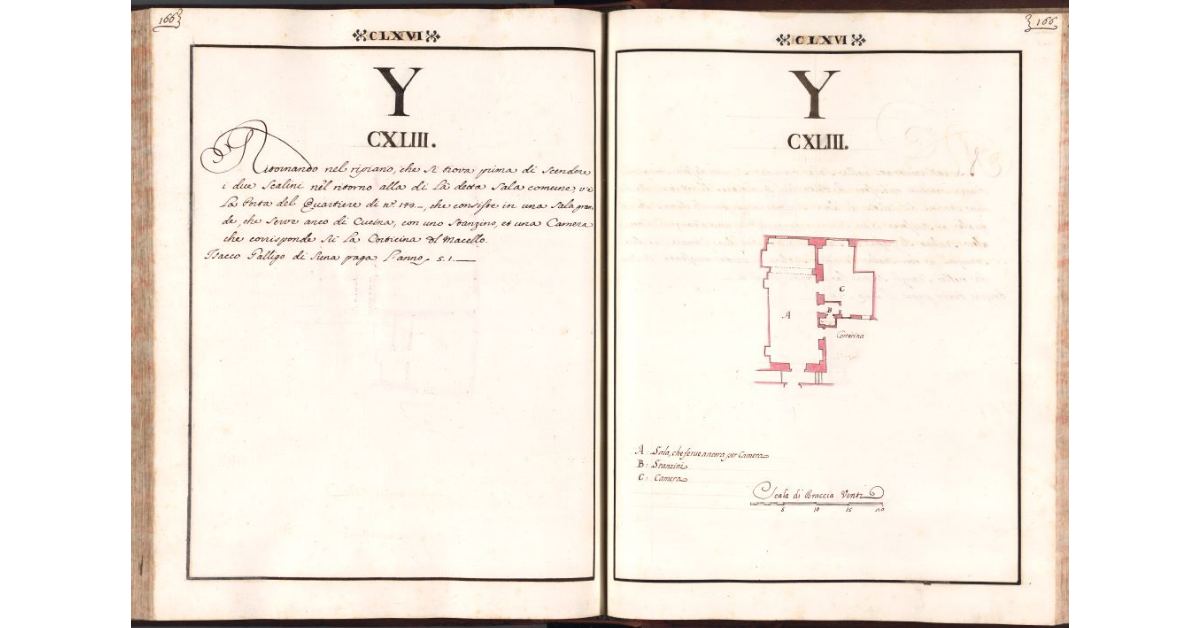 166
CLXVI
Y
CXLIII.
Ritornando nel ripiano, che si trova prima di scendere
i due scalini nel ritorno alla di là detta Sala comune, v'è
la Porta del Quartiere di nº
che consiste in una Sala gran-
de, che serve anco di Cucina, con uno Stanzino, et una Camera
che corrisponde sù la Corticina del Macello.
Isacco Galligo di Siena paga l'anno. s. 1.
166
CLXVI
Y
CXLIII.
A
B
C
Corticina
A Sala, che serve ancora per Camera
B: Stanzini
C: Camera
Scala di Braccia Venti
5 10 15 20